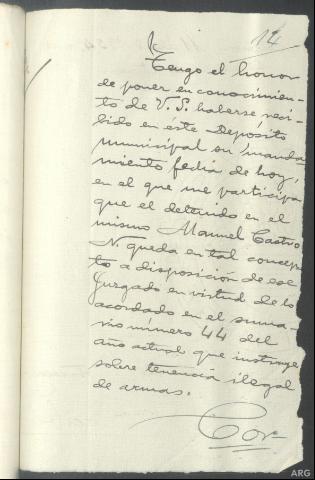 14
Tengo el honor
de poner en conocimien-
to de V. S. haberse reci-
bido en éste Deposito
municipal su manda-
miento fecha de hoy,
en el que me participa
que el detenido en el
mismo Manuel Castro
N. queda en tal concep-
to a disposición de ese
Juzgado en virtud de lo
acordado en el suma-
rio número 44 del
año actual que instruye
sobre tenencia ilegal
de armas.
Cor-
ARG